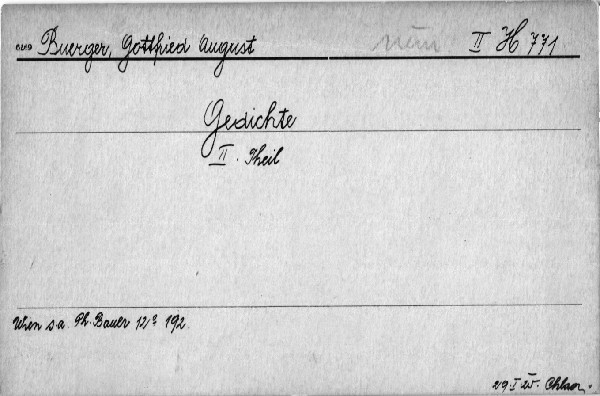 Buerger, Gottfried August II H 771
Gedichte
II. Theil
Wien s.a. Ph. Bauer 12° 192.